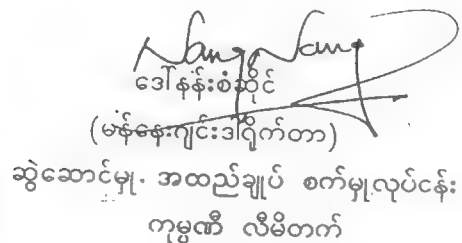 Nang Nang
ဒေါ်နန်းစံဆိုင်
(မန်နေးဂျင်းဒါရိုက်တာ)
ဆွဲဆောင်မှု. အထည်ချုပ် စက်မှုလုပ်ငန်း
ကုမ္ပဏီ လီမိတက်